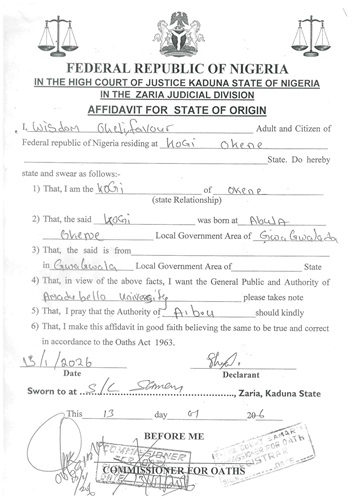 FEDERAL REPUBLIC OF NIGERIA
IN THE HIGH COURT OF JUSTICE KADUNA STATE OF NIGERIA
IN THE ZARIA JUDICIAL DIVISION
AFFIDAVIT FOR STATE OF ORIGIN
I, Wisdom Adult and Citizen of
Federal republic of Nigeria residing at KOGI Okene
State. Do hereby
state and swear as follows:-
1) That, I am the KOGI of Okene
(state Relationship)
2) That, the said KOGI was born at
Okene Local Government Area of
3) That, the said is from
in Local Government Area of State
4) That, in view of the above facts, I want the General Public and Authority of
University please takes note
5) That, I pray that the Authority of should kindly
6) That, I make this affidavit in good faith believing the same to be true and correct
in accordance to the Oaths Act 1963.
13/1/2026
Date Declarant
Sworn to at S/C Samaru, Zaria, Kaduna State
This 13 day 01 206
BEFORE ME
COMMISSIONER FOR OATHS